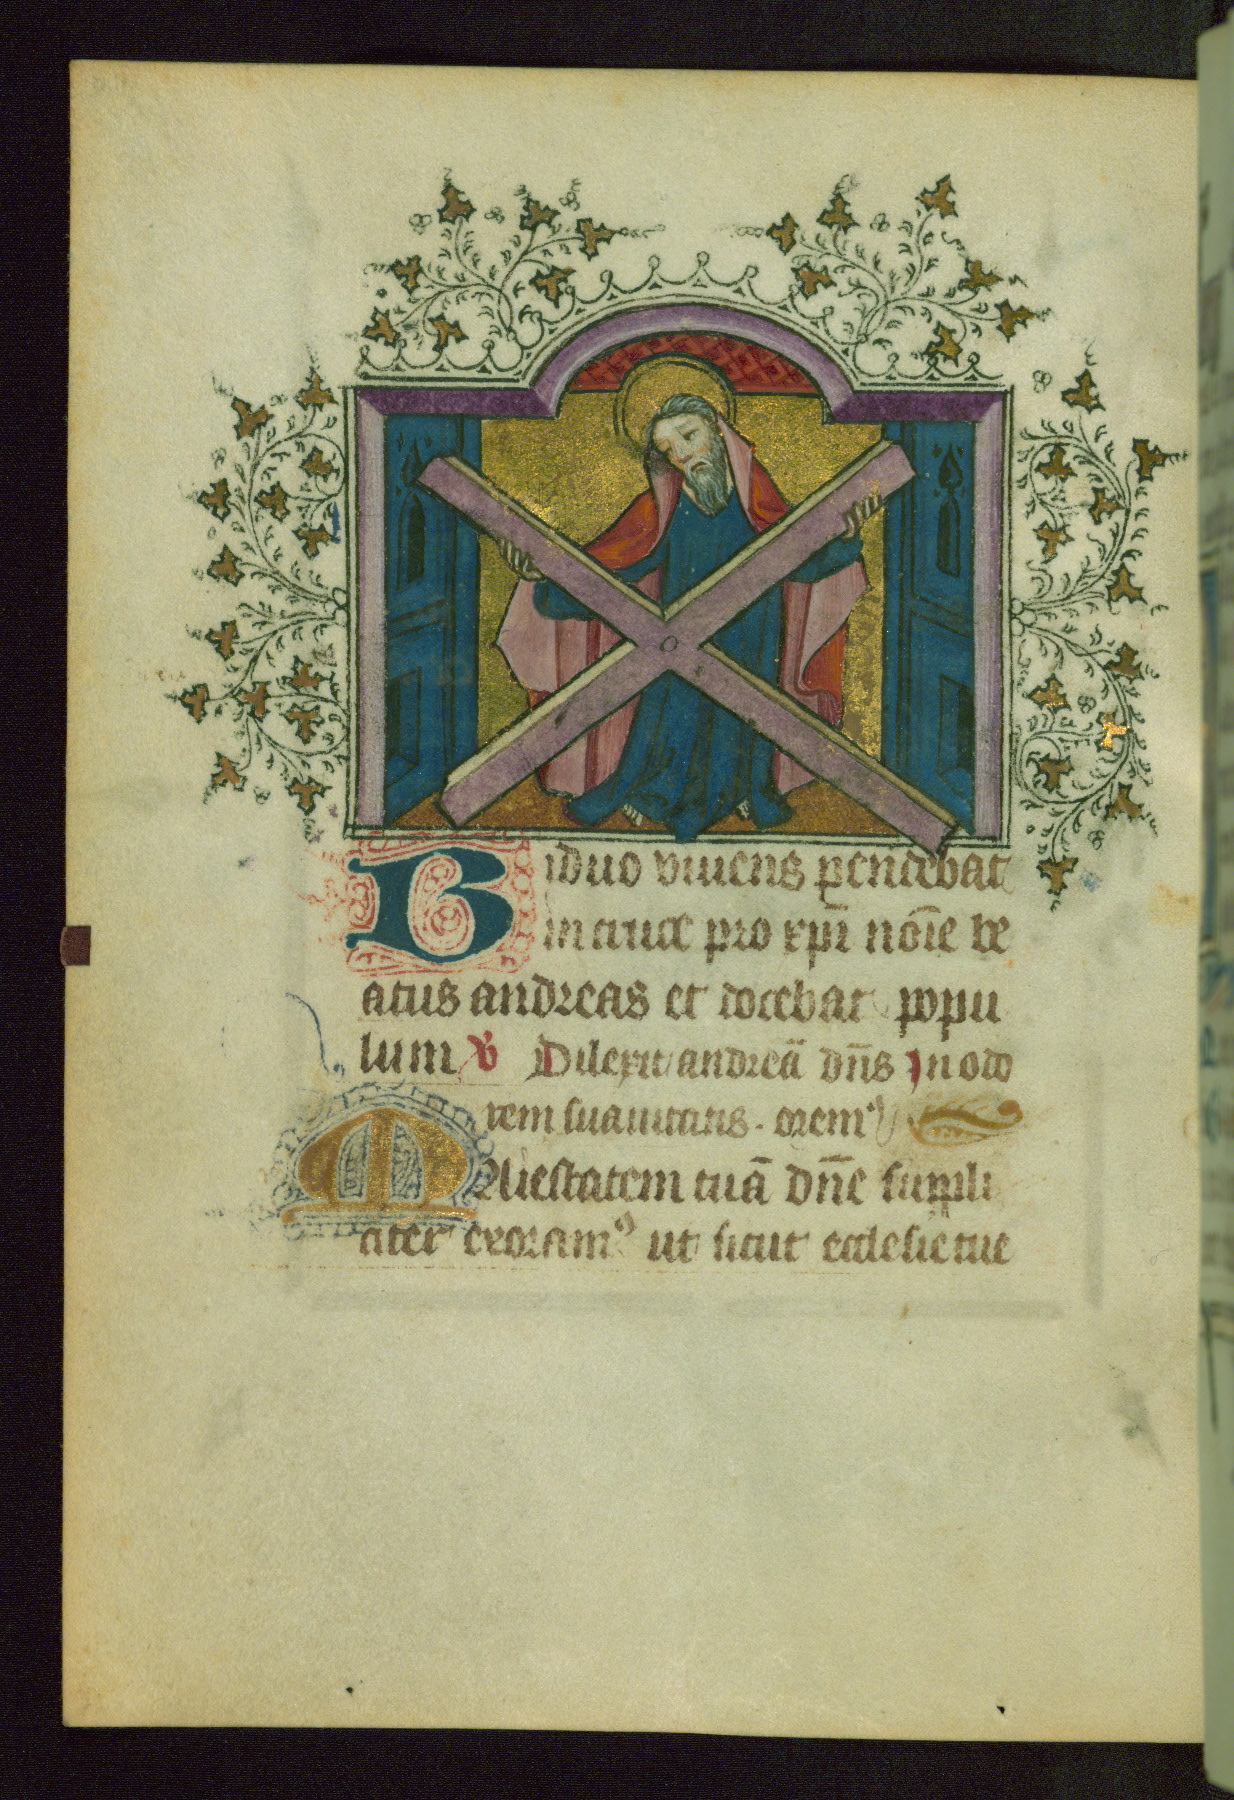 Biduo viuens pendebat
in cruce pro xpi̅ no̅ie be
atus andreas et docebat popu
lum ℣ Dilexit andrea̅ dn̅s In odo
rem suauitatis. oremꝰ
Maiestatem tua̅ dn̅e suppli
citer exoramꝰ ut sicut ecclesie tue